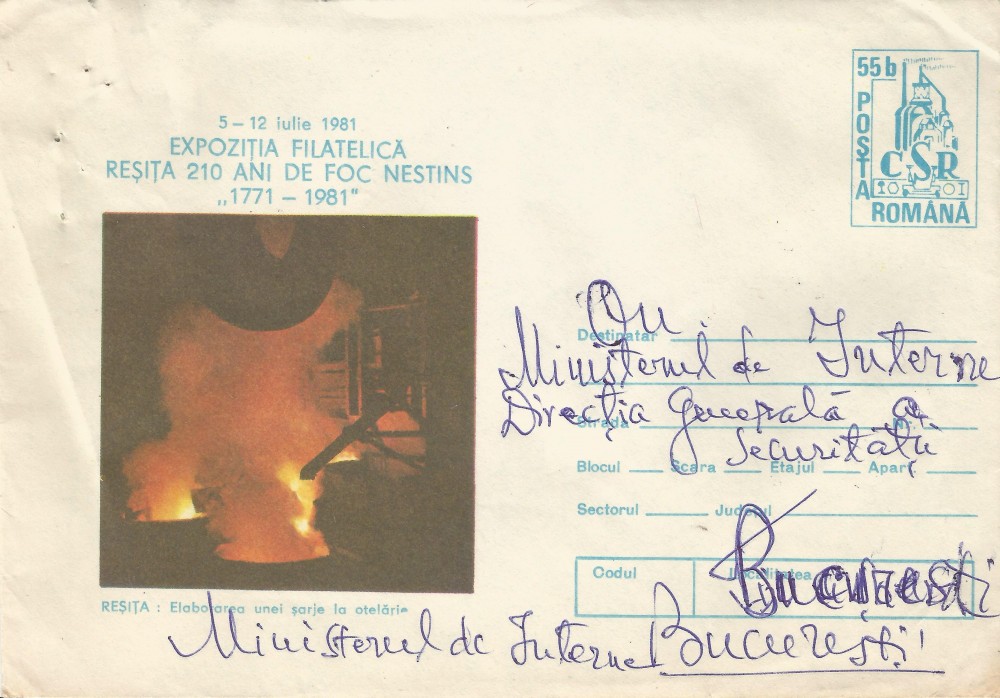 5 – 12 iulie 1981
EXPOZIȚIA FILATELICĂ
REȘIȚA 210 ANI DE FOC NESTINS
„1771 – 1981"
55 b
POȘTA
CSR
ROMÂNĂ
Destinatar
Ministerul de Interne
Direcția Generală a
Strada
Securității
Blocul Scara Etajul Apart.
Sectorul Județul
București
Codul Localitatea
REȘIȚA : Elaborarea unei șarje la oțelărie
Ministerul de Interne București